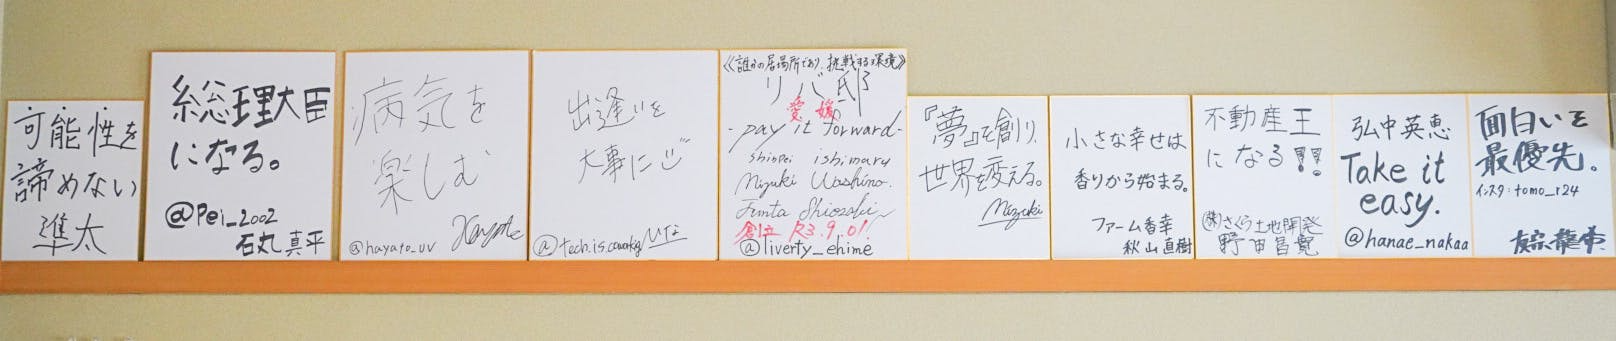 可能性を
諦めない
準太
総理大臣
になる。
@Pei_2002
石丸真平
病気を
楽しむ
@hayato_uv
Hayate
出逢いを
大事に
@tech.is.coworkg
《誰かの居場所であり、挑戦する環境》
リバ邸
愛媛
-pay it forward-
shinpei ishimaru
Mizuki Washino.
Junta Shiozaki
創立 R3.9.01!
@liverty_ehime
『夢』を創り、
世界を変える。
Mizuki
小さな幸せは
香りから始まる。
ファーム香幸
秋山直樹
不動産王
になる!!
(株)さくら土地開発
野田昌寛
弘中英恵
Take it
easy.
@hanae_nakaa
面白いを
最優先。
インスタ:tomo_r24